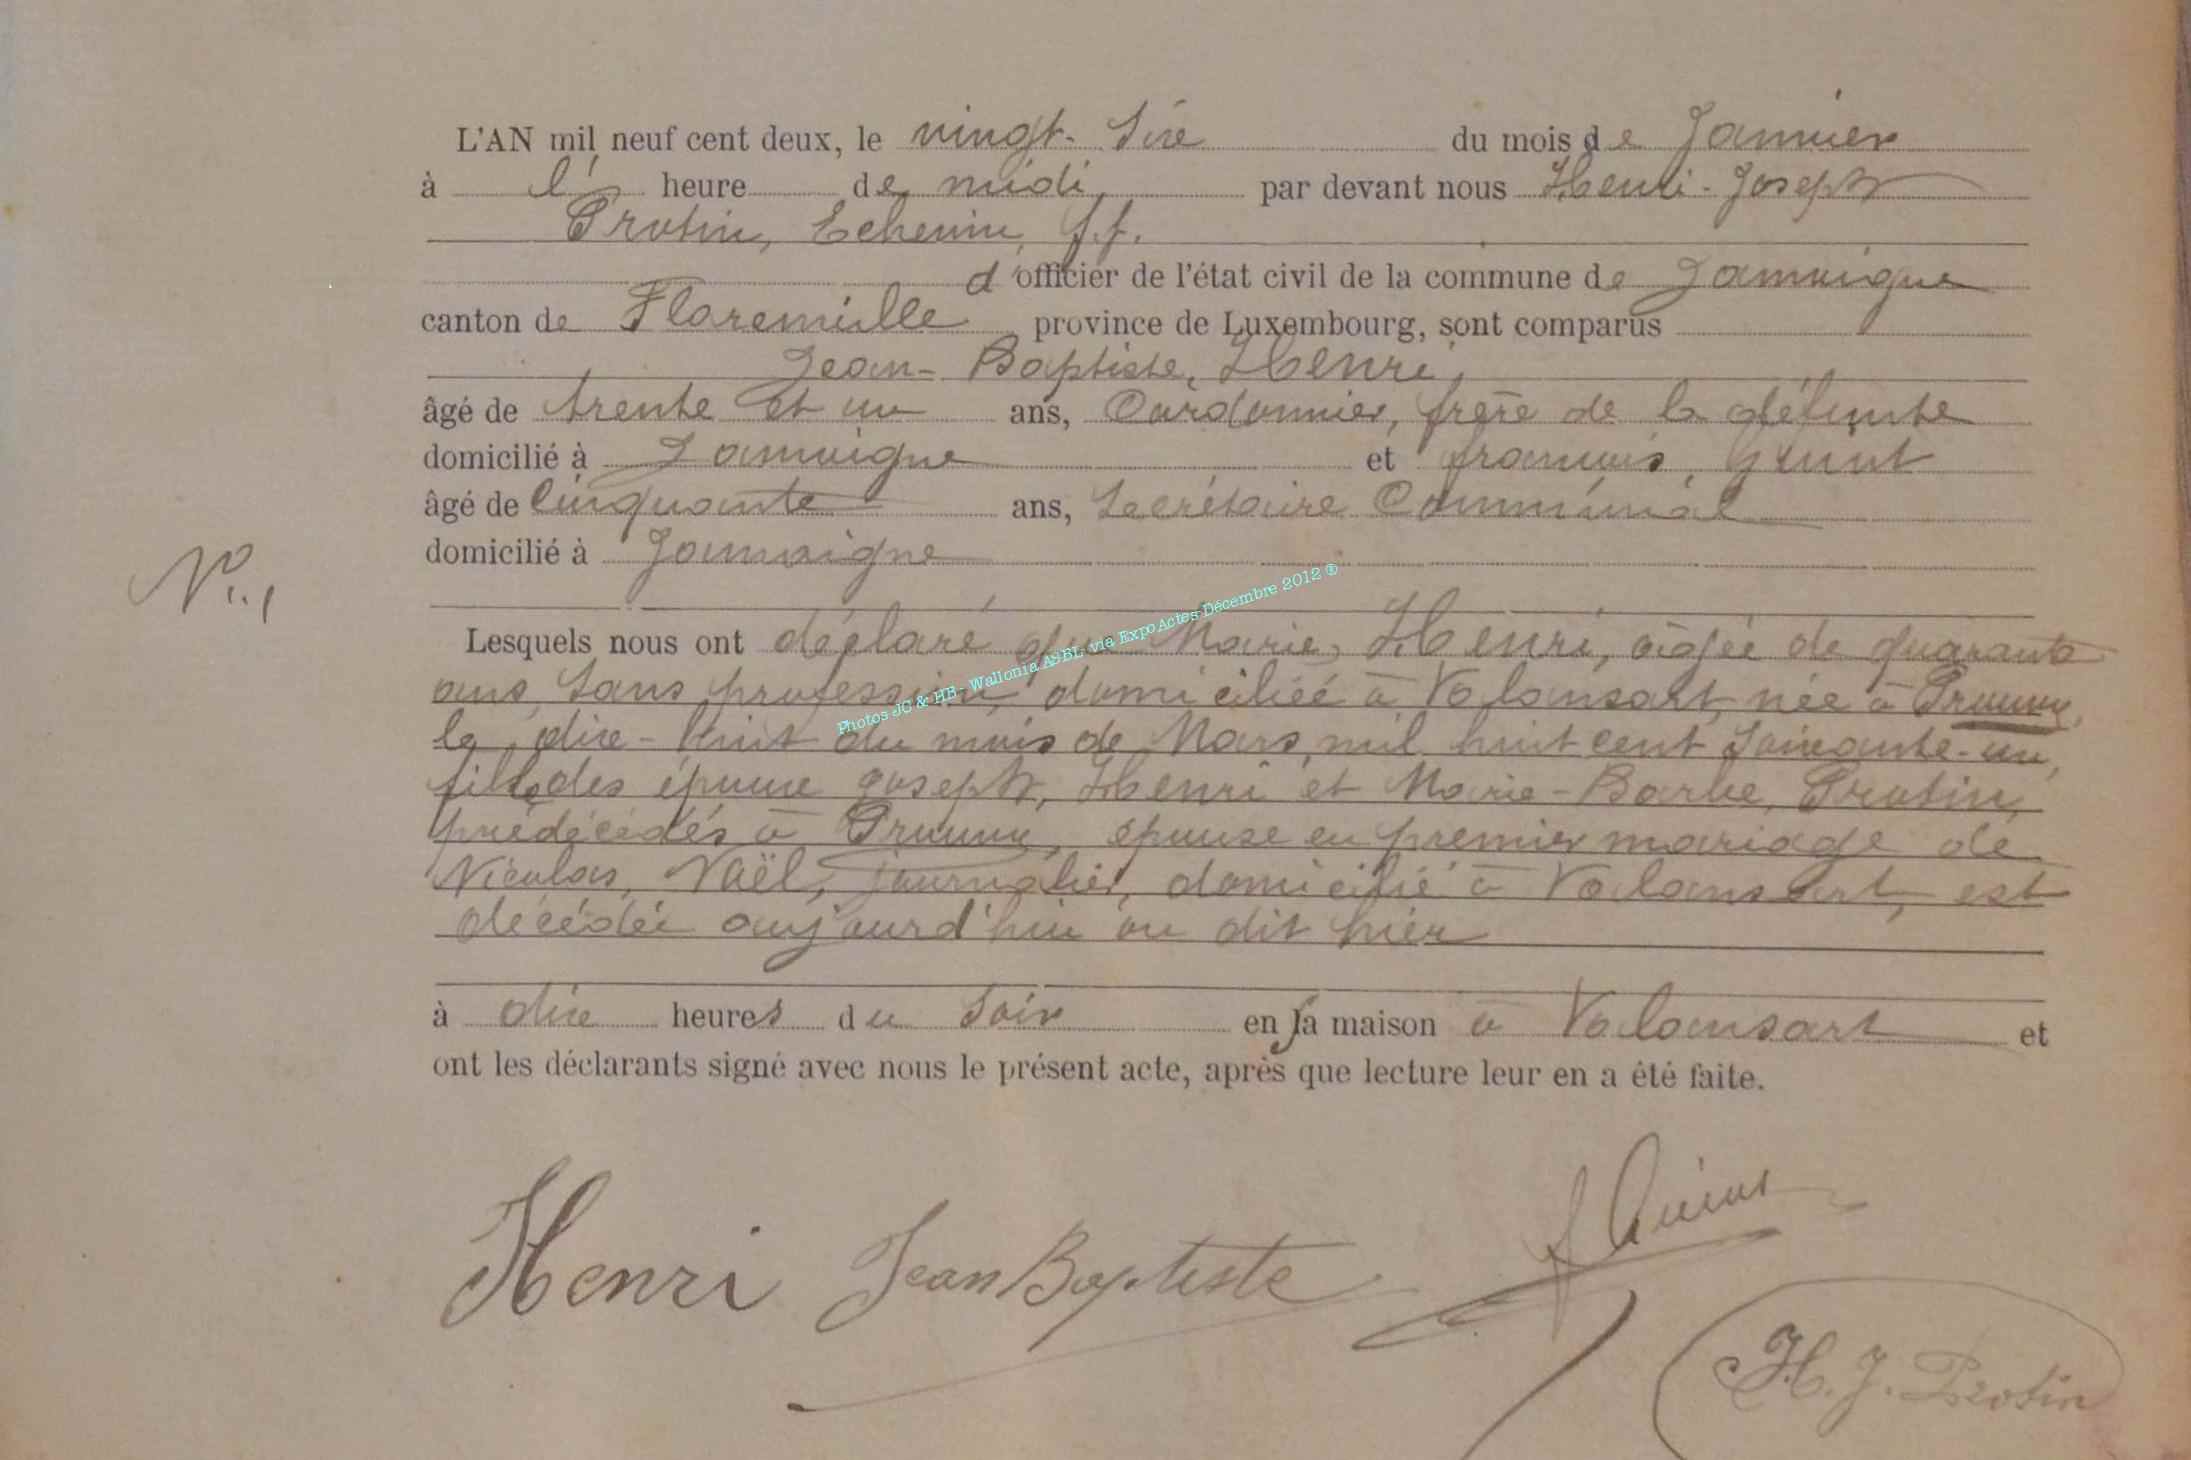 L'AN mil neuf cent deux, le vingt-six du mois de Janvier
à l' heure de midi, par devant nous Henri-Joseph
Protin, Echevin, f.f.
d'officier de l'état civil de la commune de Jamoigne
canton de Florenville province de Luxembourg, sont comparus
Jean-Baptiste, Henri,
âgé de trente et un ans, Cordonnier, frère de la défunte
domicilié à Jamoigne et françois,
âgé de Cinquante ans, Secrétaire Communal
domicilié à Jamoigne
N° 1
Lesquels nous ont déclaré que Marie, Henri, âgée de quarante
ans, Sans profession, domiciliée à Valansart, née à Prouvy,
le dix-huit du mois de Mars, mil huit cent soixante-un,
fille des époux Joseph, Henri et Marie-Barbe, Protin,
prédécédés à Prouvy, épouse en premier mariage de
Nicolas, Noël, journalier, domicilié à Valansart, est
décédée aujourd'hui ou dit hier
à dix heures du Soir en sa maison à Valansart et
ont les déclarants signé avec nous le présent acte, après que lecture leur en a été faite.
Photos JC & HB - Wallonia ASBL via ExpoActes Décembre 2012 ®
Henri Jean Baptiste
H. J. Protin